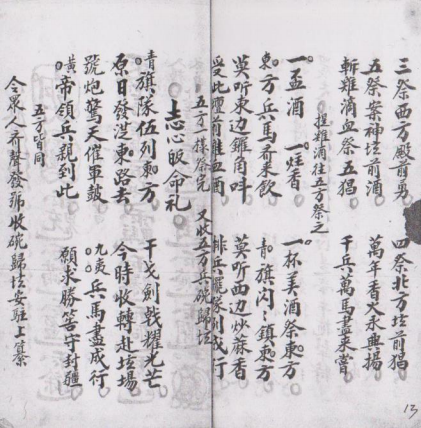 三祭西方殿前勇 四祭北方坛前猖
五祭案神坛前酒 萬年香火永興揚
斬雞滴血祭五猖 千兵萬馬盡来嘗
捉雞滴往五方祭之
一盃酒 一炷香 一杯美酒祭東方
東方兵馬希来飲 青旗闪〻鎮東方
莫听東边鑼角吽 莫听西边炒蔴香
受此壇前雞血酒 排兵隊列成行
五方一樣祭完 又收五方兵碗歸坛
志心皈命礼
青旗隊伍列東方 干戈劍戟耀光芒
原日發洪東路去 今時收轉赴坛場
號炮驚天催軍鼓 九夷兵馬盡成行
黄帝領兵親到此 願求勝筶守封疆
五方皆同
令眾人齊聲發號收碗歸坛安駐上篆
13